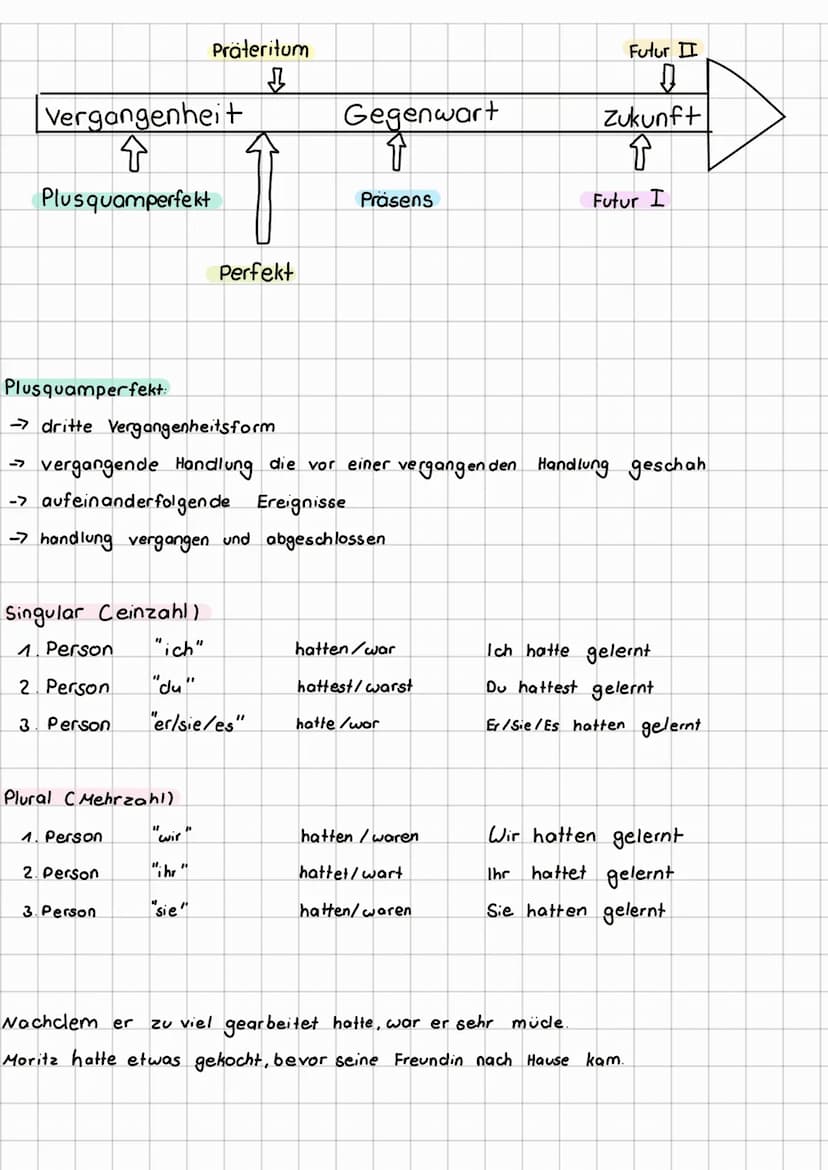 Präteritum Futur II
Vergangenheit Gegenwart Zukunft
Plusquamperfekt Präsens Futur I
Perfekt
Plusquamperfekt:
→ dritte Vergangenheitsform
→ vergangende Handlung die vor einer vergangenden Handlung geschah
→ aufeinanderfolgende Ereignisse
→ handlung vergangen und abgeschlossen
Singular (einzahl)
1. Person "ich" hatten/war Ich hatte gelernt
2. Person "du" hattest/warst Du hattest gelernt
3. Person "er/sie/es" hatte/war Er/Sie/Es hatten gelernt
Plural (Mehrzahl)
1. Person "wir" hatten/waren Wir hatten gelernt
2. Person "ihr" hattet/wart Ihr hattet gelernt
3. Person "sie" hatten/waren Sie hatten gelernt
Nachdem er zu viel gearbeitet hatte, war er sehr müde.
Moritz hatte etwas gekocht, bevor seine Freundin nach Hause kam.